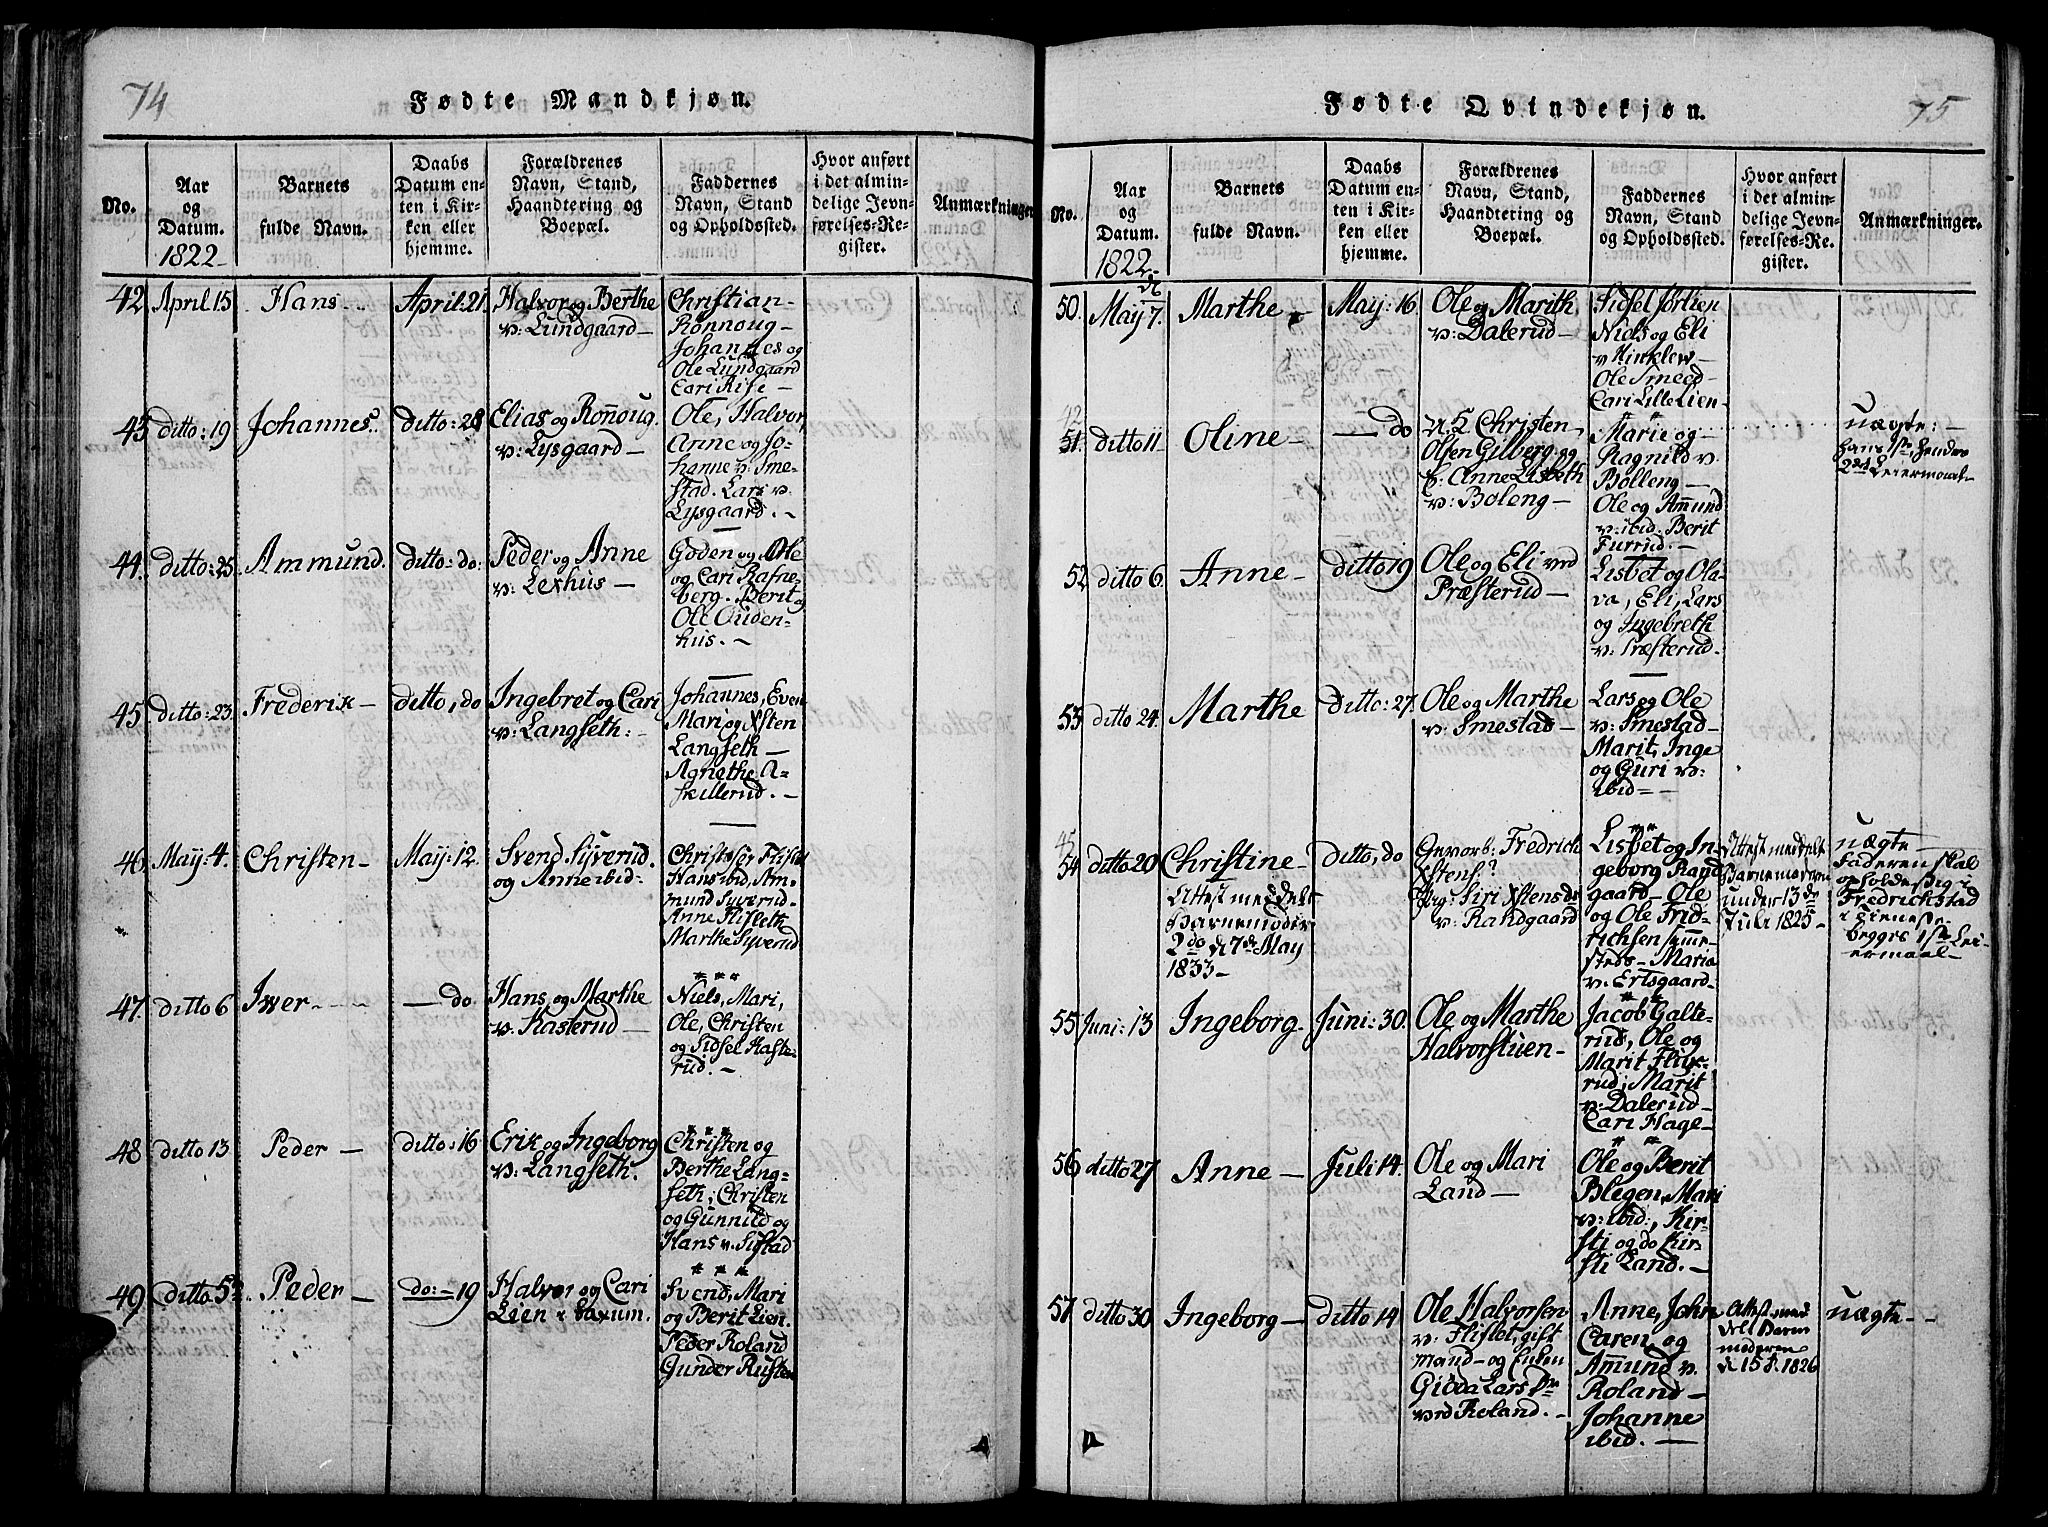 74
Fødte Mandkjøn.
No.
Aar
og
Datum.
1822
Barnets
fulde Navn.
Daabs
Datum en-
ten i Kir-
ken eller
hjemme.
Forældrenes
Navn, Stand,
Haandtering og
Boepæl.
Faddernes
Navn, Stand
og Opholdssted.
Hvor anført
i det almin-
delige Jevn-
førelses-Re-
gister.
Anmærkninger
42 April 15 Hans April 21
Halvor og Berthe
v: Lundgaard
Christian
Rönnoug
Johannes og
Ole Lundgaard
Cari Rise
43 ditto: 19 Johannes ditto: 28
Elias og Ronnoug
v: Lysgaard
Ole, Halvor,
Anne og Jo-
hanne v: Sme-
stad. Lars v:
Lysgaard.
44. ditto: 25 Ammund ditto: do:
Peder og Anne
v: Lexhus
Goden og Ole
og Cari Rafne-
berg. Berit og
Ole Ouden-
hus.
45 ditto: 23 Frederik ditto, do
Ingebret og Cari
v: Langseth:
Johannes, Even
Mari og Xsten
Langseth
Agnethe A-
skillerud.
46 May: 4. Christen May: 12.
Svend Syverud.
og Anne ibid
Christoffer Flislet
Hans ibid, Am-
mund Syverud
Anne Flisleth
Marthe Syverud
47. ditto 6 Iwer do
Hans og Marthe
v: Kasterud
Niels, Mari,
Ole, Christen
og Sidsel Kaste-
rud.
48 ditto 13 Peder ditto: 16
Erik og Ingeborg
v: Langseth.
Christen og
Berthe Lang-
seth, Christen
og Gunnild og
Hans v. Sistad
49 ditto 5 Peder do: 19
Halvor og Cari
Lien v Saxum.
Svend, Mari
og Berit Lien.
Peder Roland
Gunder Rusten
75
Fødte Qvindekjøn.
No.
Aar
og
Datum.
1822
Barnets
fulde Navn.
Daabs
Datum en-
ten i Kir-
ken eller
hjemme.
Forældrenes
Navn, Stand,
Haandtering og
Boepæl.
Faddernes
Navn, Stand
og Opholdssted.
Hvor anført
i det almin-
delige Jevn-
førelses-Re-
gister.
Anmærkninger.
50. May 7. Marthe May: 16
Ole og Marith
v: Dalerud
Sidsel
Niels og Eli
v Winklew
Ole Smeed
Cari Lille Lien
42
51. ditto 11 Oline do
Christen
Olsen Gilberg og
p: Anne Lisbeth
v: Boleng
Marie og
Ragnild v.
Bolleng
Ole og Ammund
v: ibid. Berit
Furrud.
uægte:
hans 1ste, hendes
2det Leiermaal
52 ditto 6. Anne ditto 19
Ole og Eli ved
Præsterud
Lisbet og Ola-
va, Eli, Lars
og Ingebreth
v: Præsterud.
53 ditto 24. Marthe ditto: 27.
Ole og Marthe
v: Smestad
Lars og Ole
v: Smestad
Marit, Inge
og Guri v:
ibid
45
54 ditto 20 Christine ditto, do
Attest meddelt
Barnemoder
2do d 7de May
1833
Fredrich
Xstens:
Siri Xstensdr
v: Randgaard
Lisbet og In-
geborg Rand
gaard Ole
og Ole Frid-
richsen samme-
steds Maria
v: Ertsgaard
Attest meddelt
Barnemoderen
under 13de
Juli 1825
uægte
Faderen skal
opholde sig i
Fredrichstad
i Tieneste
begges 1ste Lei-
ermaal
55 Juni: 13 Ingeborg Juni: 30.
Ole og Marthe
Halvorstuen
Jacob Galte-
rud, Ole og
Marit Flux-
rud, Marit
v: Dalerud
Cari Hage
56 ditto 27 Anne Juli 14.
Ole og Mari
Land
Ole og Berit
Blegen, Mari
v: ibid:, Kir-
sti og do Kir-
sti Land.
57 ditto 30 Ingeborg ditto 14
Ole Halvorsen
v: Flislet, gift
Mand og Enken
Giöda Lars Dr
ved Roland.
Anne, John
Caren, og
Ammund v.
Roland
Johanne
ibid.
Attest med
delt Barne
moderen
d 15 1826
uægte